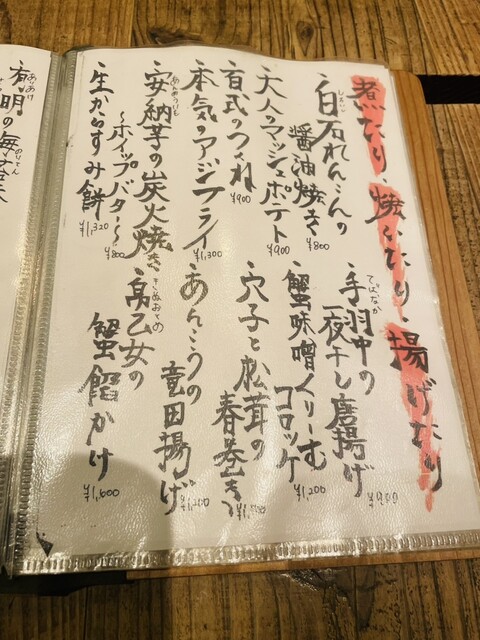 煮たり・焼いたり・揚げたり
・白石れんこんの
しろいし
醤油焼き
¥800
・大人のマッシュポテト
¥900
・百式のつくね
¥900
・本気のアジフライ
¥1,300
・安納芋の炭火焼き
あんのういも
〜ホイップバター〜
¥800
・生からすみ餅
¥1,320
・手羽中の
てばなか
一夜干し唐揚げ
¥900
・蟹味噌くりーむ
コロッケ
¥1,200
・穴子と松茸の
春巻き
・あんこうの
竜田揚げ
¥1,200
・絹乙女の
きぬおとめの
蟹餡かけ
¥1,600
有明の海苔天
ありあけ
のりてん